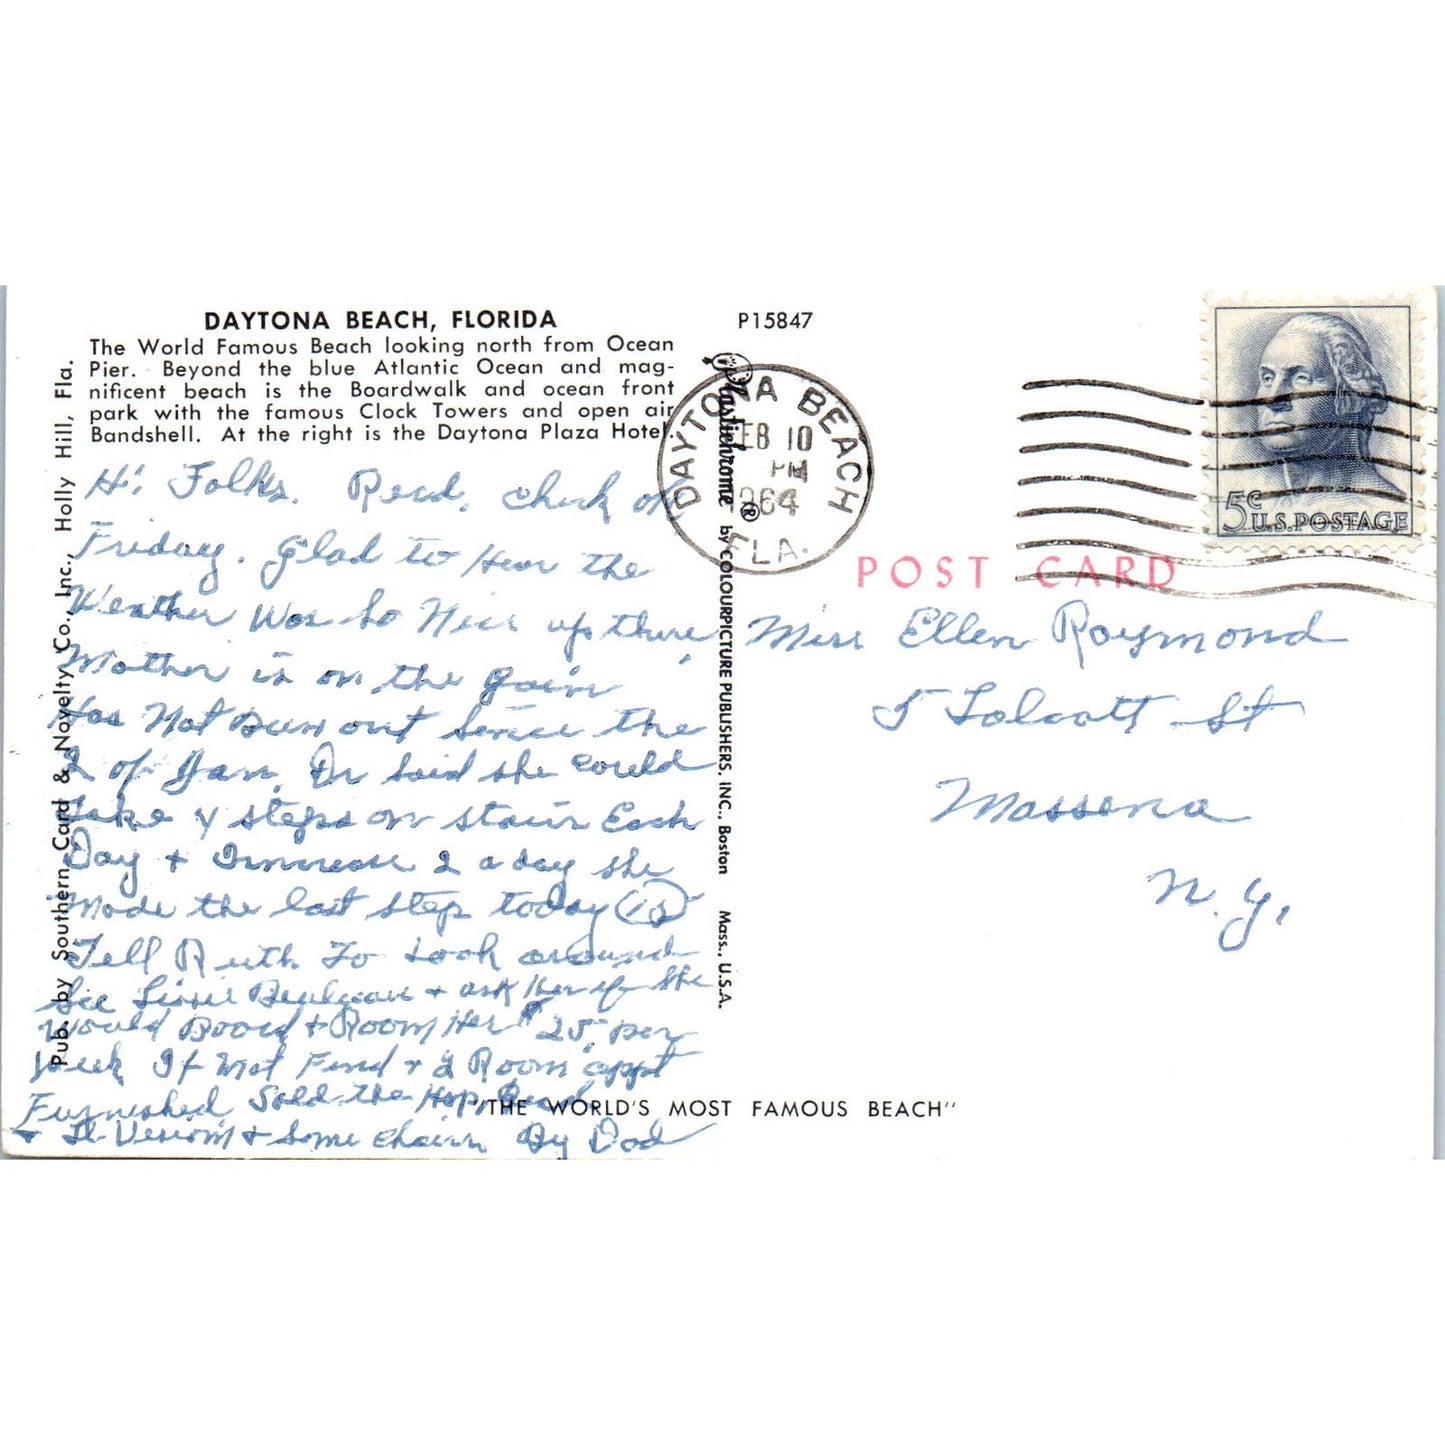 DAYTONA BEACH, FLORIDA
The World Famous Beach looking north from Ocean
Pier. Beyond the blue Atlantic Ocean and mag-
nificent beach is the Boardwalk and ocean front
park with the famous Clock Towers and open air
Bandshell. At the right is the Daytona Plaza Hotel.
P15847
Pub. by Southern Card & Novelty Co., Inc., Holly Hill, Fla.
Hi Folks. Recd. check on
Friday. Glad to Hear the
Weather Was So Nice up there,
Mother is on the gain
Has Not Been out Since the
2 of Jan. Dr said she could
take 4 steps on stairs Each
Day + Increase 2 a day she
Made the last step today (13)
Tell Ruth To Look around
See + ask Her if She
Would Board + Room Her $25 per
Week If Not Find + 2 Room appt
Furnished Sold the Bead
+ + Some chairs By Dad
Plastichrome ® by COLOURPICTURE PUBLISHERS, INC., Boston Mass., U.S.A.
DAYTONA BEACH
FEB 10
PM
1964
FLA.
5¢ U.S. POSTAGE
POST CARD
Miss Ellen Raymond
5 Talcott St
Massena
N.Y.
"THE WORLD'S MOST FAMOUS BEACH"